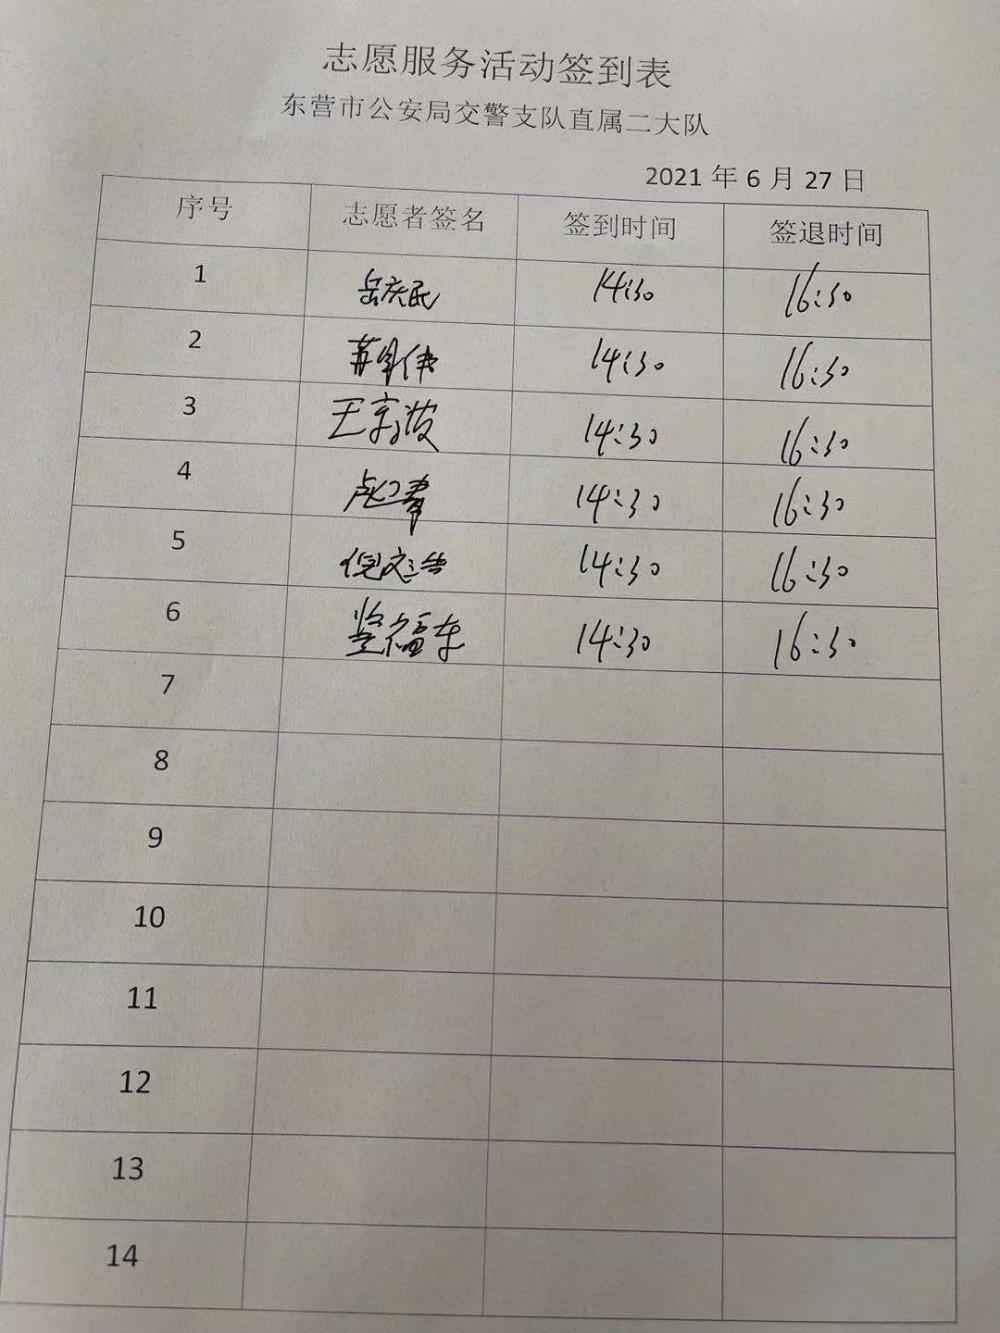 志愿服务活动签到表
东营市公安局交警支队直属二大队
2021 年 6 月 27 日
序号 志愿者签名 签到时间 签退时间
1 岳庆民 14:30 16:30
2 14:30 16:30
3 王京波 14:30 16:30
4 14:30 16:30
5 倪文浩 14:30 16:30
6 福东 14:30 16:30
7
8
9
10
11
12
13
14